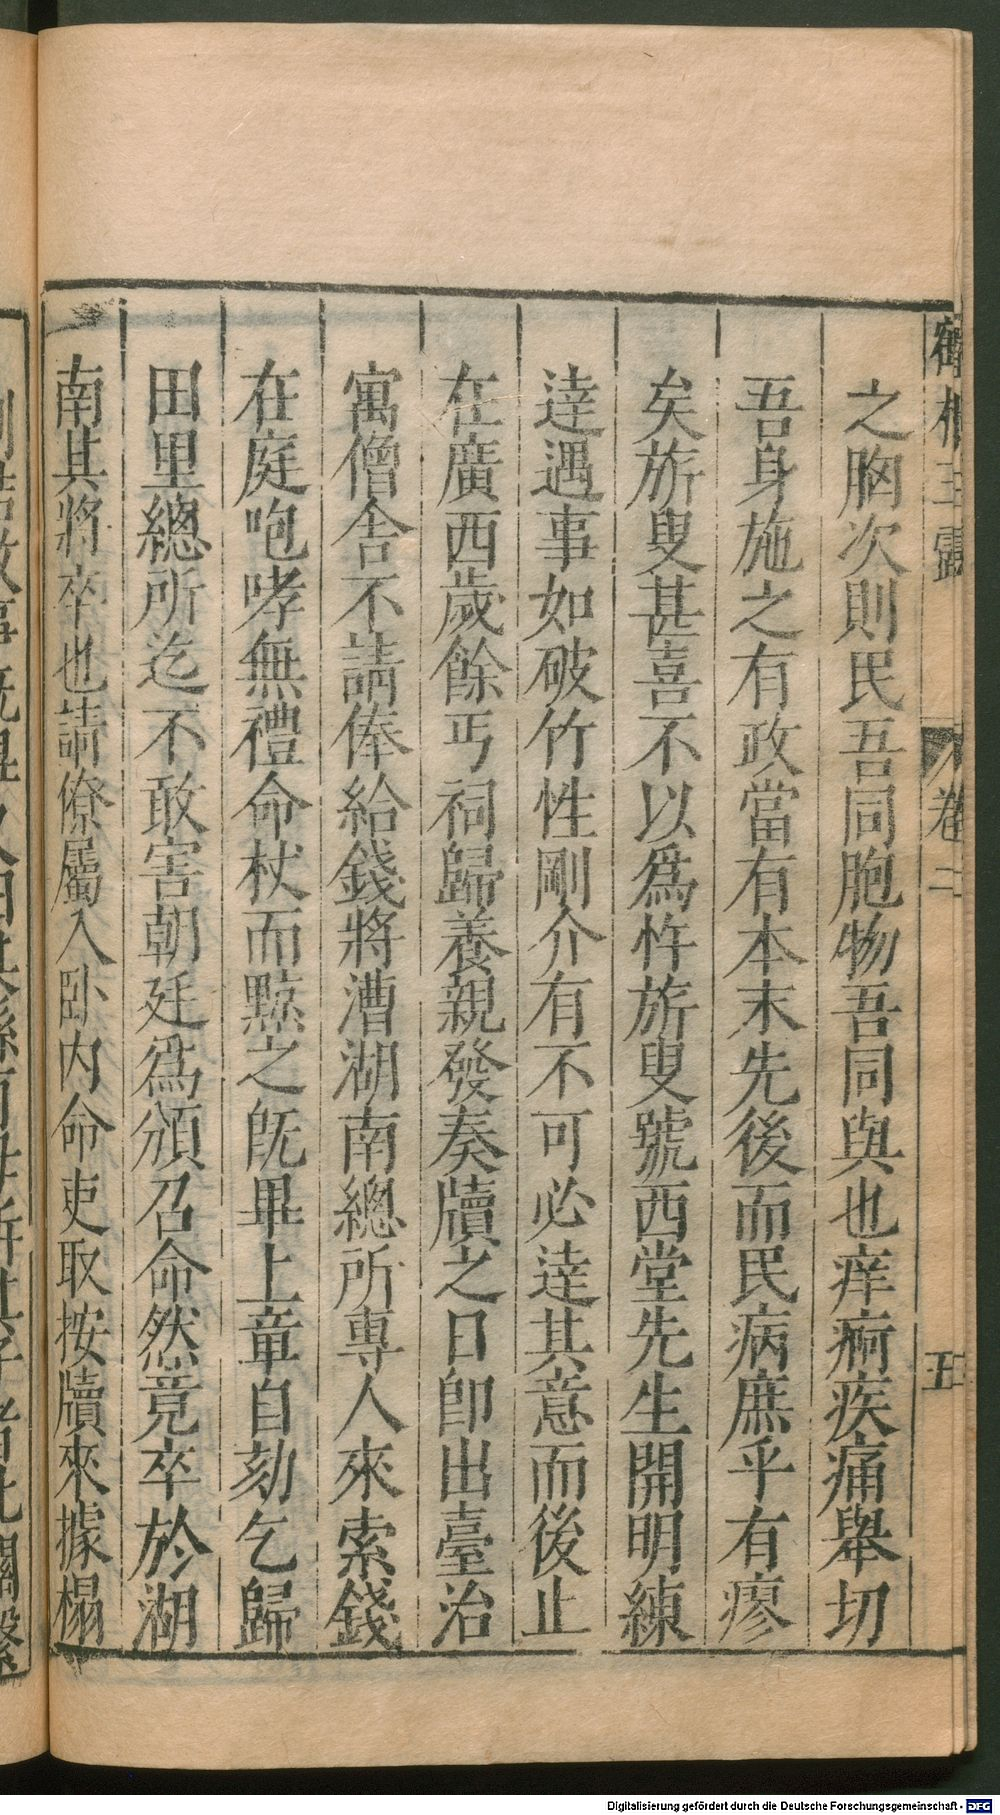 鶴林玉露
卷二
五
之胸次則民吾同胞物吾同與也痒痾疾痛舉切
吾身施之有政當有本末先後而民病庶乎有瘳
矣旂叟甚喜不以爲忤旂叟號西堂先生開明練
達遇事如破竹性剛介有不可必達其意而後止
在廣西歲餘丐祠歸養親發奏牘之日卽出臺治
寓僧舍不請俸給錢將漕湖南總所專人來索錢
在庭咆哮無禮命杖而黥之旣畢上章自劾乞歸
田里總所迄不敢害朝廷爲頒召命然竟卒於湖
南其將卒也請僚屬入卧內命吏取按牘來據榻
Digitalisierung gefördert durch die Deutsche Forschungsgemeinschaft - DFG